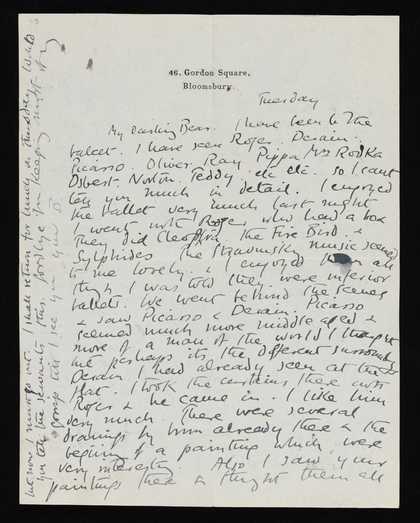 46. Gordon Square,
Bloomsbury.
Tuesday
My Darling Bear. I have been to the
ballet. I have seen Roger. Derain.
Picasso. Oliver. Ray. Pippa Mrs Rodka
Osbert. Norton. Teddy. etc etc. so I cant
tell you much in detail. I enjoyed
the ballet very much last night
I went with Roger who had a box
They did Cleopatra the Fire Bird &
Sylphides the Stravinsky music seemed
to me lovely. & I enjoyed them all
though I was told they were inferior
ballets. We went behind the scenes
& saw Picasso & Derain. Picasso
seemed much more middle aged &
more of a man of the world I thought
but perhaps its the different surroundings
Derain I had already seen at the
flat. I took the curtains there with
Roger & he came in. I like him
very much. There were several
drawings by him already there & the
beginning of a painting which were
very interesting. Also I saw your
paintings there & thought them all
but now I must go out. I shall return for lunch on Thursday. Would
you tell the servants this. Goodbye I'm keeping
gossip till I see you. Your